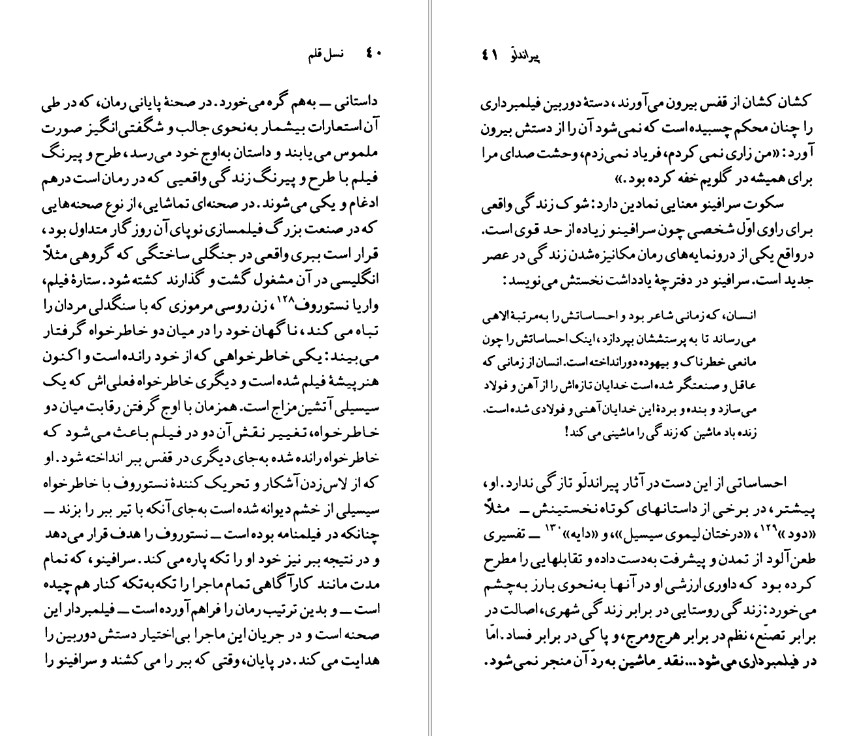 ۴۰ نسل قلم
داستانی ــ به‌هم گره می‌خورد. در صحنهٔ پایانی رمان، که در طی
آن استعارات بیشمار به‌نحوی جالب و شگفتی‌انگیز صورت
ملموس می‌یابند و داستان به‌اوج خود می‌رسد، طرح و پیرنگ
فیلم با طرح و پیرنگ زندگی واقعیی که در رمان است درهم
ادغام و یکی می‌شوند. در صحنه‌ای تماشایی، از نوع صحنه‌هایی
که در صنعت بزرگ فیلمسازی نوپای آن روزگار متداول بود،
قرار است ببری واقعی در جنگلی ساختگی که گروهی مثلاً
انگلیسی در آن مشغول گشت و گذارند کشته شود. ستارهٔ فیلم،
واریا نستوروف۱۲۸، زن روسی مرموزی که با سنگدلی مردان را
تباه می‌کند، ناگهان خود را در میان دو خاطرخواه گرفتار
می‌بیند: یکی خاطرخواهی که از خود رانده است و اکنون
هنرپیشهٔ فیلم شده است و دیگری خاطرخواه فعلی‌اش که یک
سیسیلی آتشین‌مزاج است. همزمان با اوج گرفتن رقابت میان دو
خاطرخواه، تغییر نقش آن دو در فیلم باعث می‌شود که
خاطرخواه رانده شده به‌جای دیگری در قفس ببر انداخته شود. او
که از لاس‌زدن آشکار و تحریک کنندهٔ نستوروف با خاطرخواه
سیسیلی از خشم دیوانه شده است به‌جای آنکه با تیر ببر را بزند ــ
چنانکه در فیلمنامه بوده است ــ نستوروف را هدف قرار می‌دهد
و در نتیجه ببر نیز خود او را تکه پاره می‌کند. سرافینو، که تمام
مدت مانند کارآگاهی تمام ماجرا را تکه‌به‌تکه کنار هم چیده
است ــ و بدین ترتیب رمان را فراهم آورده است ــ فیلمبردار این
صحنه است و در جریان این ماجرا بی‌اختیار دستش دوربین را
هدایت می‌کند. در پایان، وقتی که ببر را می‌کشند و سرافینو را
پیراندلّو ۴۱
کشان کشان از قفس بیرون می‌آورند، دستهٔ دوربین فیلمبرداری
را چنان محکم چسبیده است که نمی‌شود آن را از دستش بیرون
آورد: «من زاری نمی‌کردم، فریاد نمی‌زدم، وحشت صدای مرا
برای همیشه در گلویم خفه کرده بود.»
سکوت سرافینو معنایی نمادین دارد: شوک زندگی واقعی
برای راوی اوّل شخصی چون سرافینو زیاده از حد قوی است.
درواقع یکی از درونمایه‌های رمان مکانیزه‌شدن زندگی در عصر
جدید است. سرافینو در دفترچهٔ یادداشت نخستش می‌نویسد:
انسان، که زمانی شاعر بود و احساساتش را به‌مرتبهٔ الاهی
می‌رساند تا به پرستششان بپردازد، اینک احساساتش را چون
مانعی خطرناک و بیهوده دورانداخته است. انسان از زمانی که
عاقل و صنعتگر شده است خدایان تازه‌اش را از آهن و فولاد
می‌سازد و بنده و بردهٔ این خدایان آهنی و فولادی شده است.
زنده باد ماشین که زندگی را ماشینی می‌کند!
احساساتی از این دست در آثار پیراندلّو تازگی ندارد. او،
پیشتر، در برخی از داستانهای کوتاه نخستینش ــ مثلاً
«دود»۱۲۹، «درختان لیموی سیسیل»، و «دایه»۱۳۰ ــ تفسیری
طعن‌آلود از تمدن و پیشرفت به‌دست داده و تقابلهایی را مطرح
کرده بود که داوری ارزشی او در آنها به‌نحوی بارز به‌چشم
می‌خورد: زندگی روستایی در برابر زندگی شهری، اصالت در
برابر تصنّع، نظم در برابر هرج‌ومرج، و پاکی در برابر فساد. امّا
در فیلمبرداری می‌شود... نقدِ ماشین به ردّ آن منجر نمی‌شود.